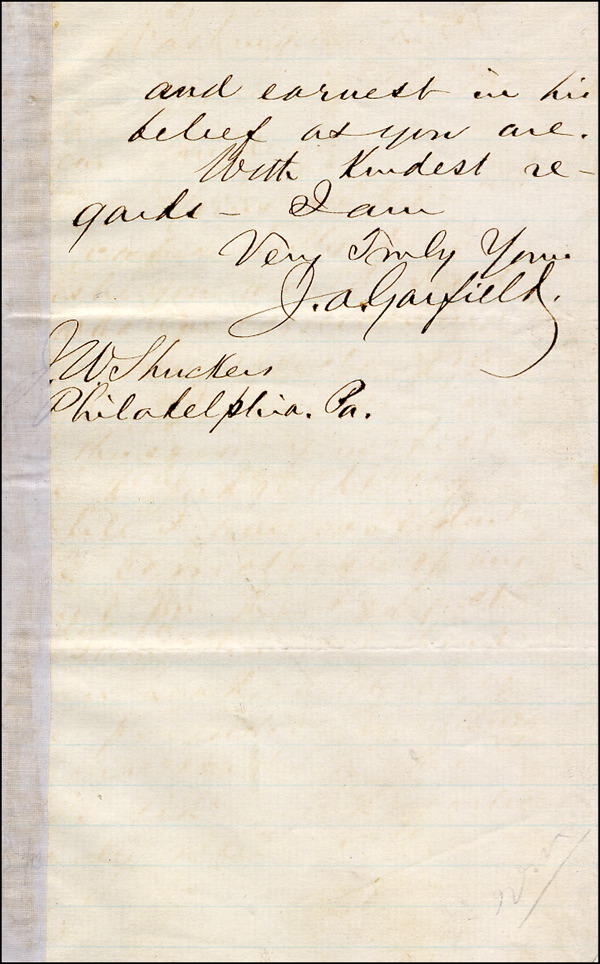 and earnest in his
belief as you are.
With Kindest re-
gards - I am
Very Truly Yours
J. A. Garfield.
J. W. Shuckers
Philadelphia. Pa.